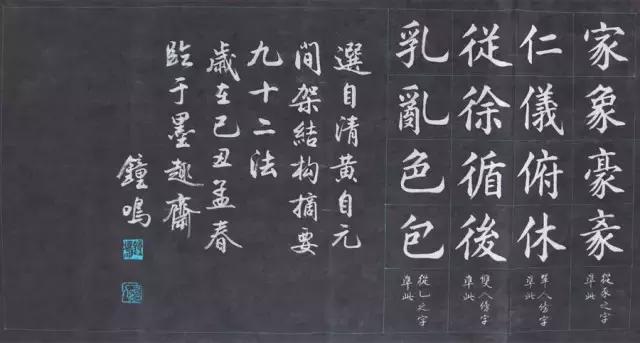 家象豪
從豕之字
準此
仁儀俯休
單人傍字
準此
從徐循後
雙人傍字
準此
乳亂色包
從乙之字
準此
選自清黄自元
间架結构摘要
九十二法
歲在己丑孟春
臨于墨趣齋
鐘鳴